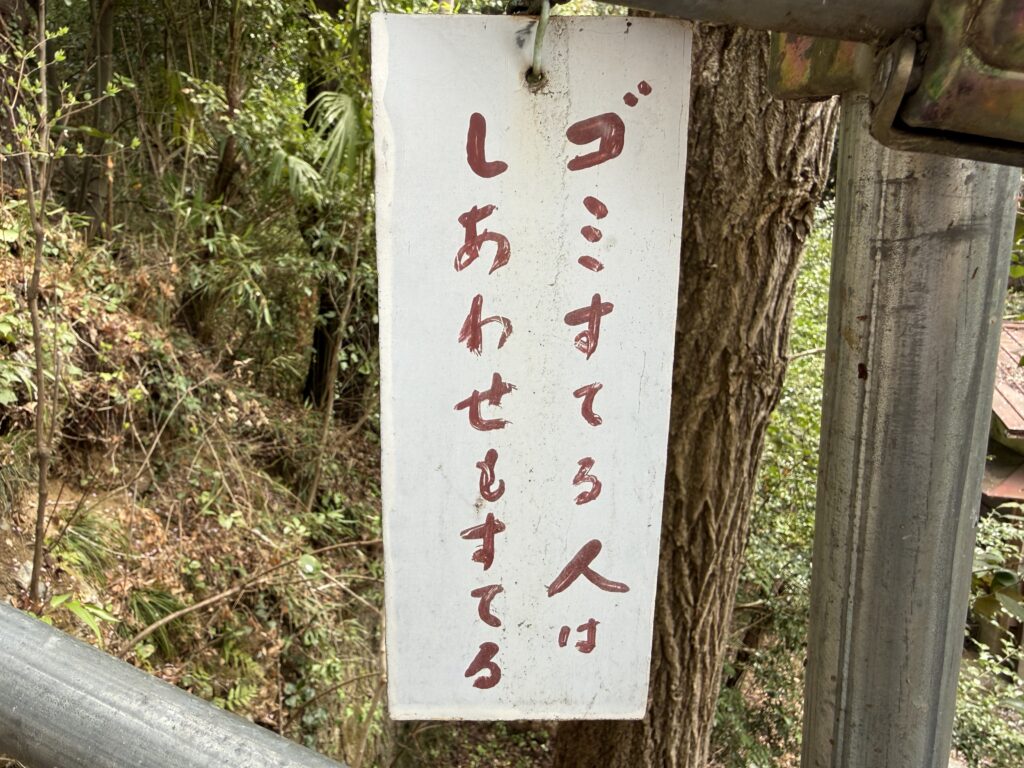 ゴミすてる人は
しあわせもすてる